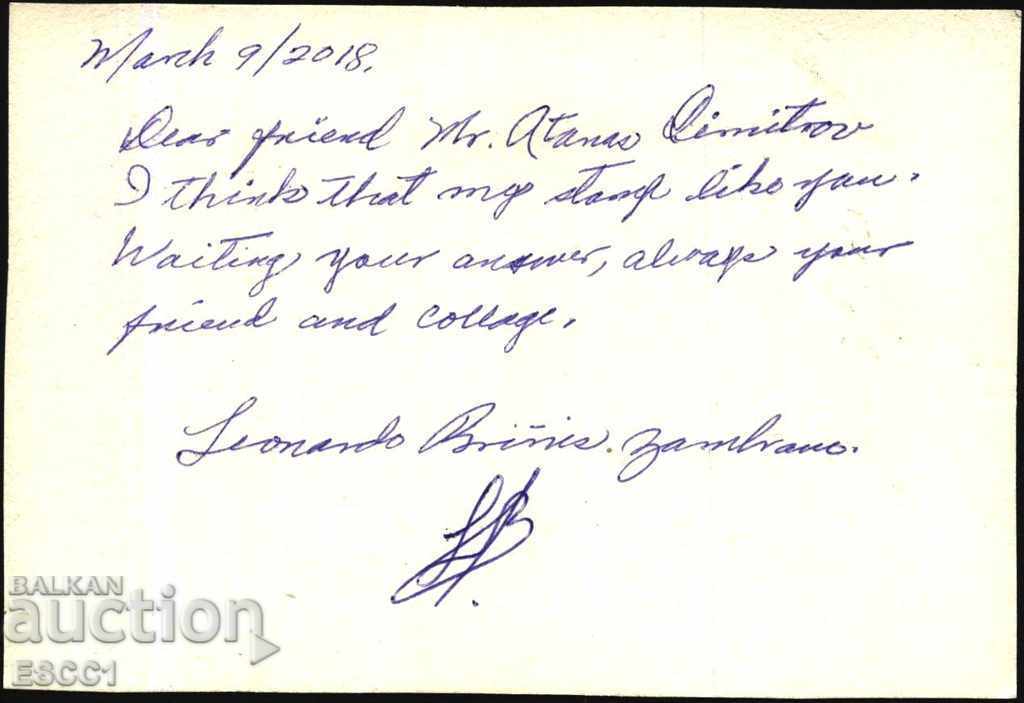 March 9/2018.
Dear friend Mr. Atanas Dimitrov
I think that my stamp like you.
Waiting your answer, always your
friend and collage.
Leonardo Zambrano.
LB.
BALKAN
auction
E8CC1